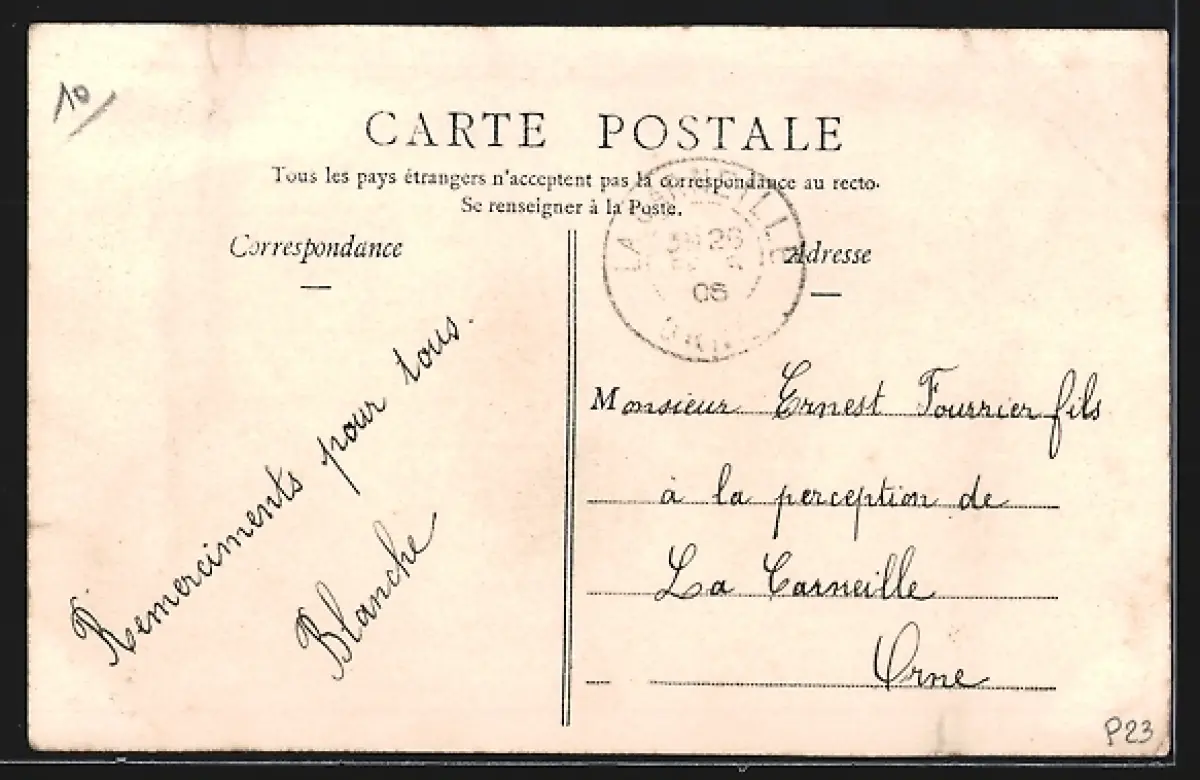 10
CARTE POSTALE
Tous les pays étrangers n'acceptent pas la correspondance au recto.
Se renseigner à la Poste.
Correspondance
Adresse
LA CARNEILLE
26
05
ORNE
Remerciments pour tous.
Blanche
Monsieur Ernest Fourrier fils
à la perception de
La Carneille
Orne
P23